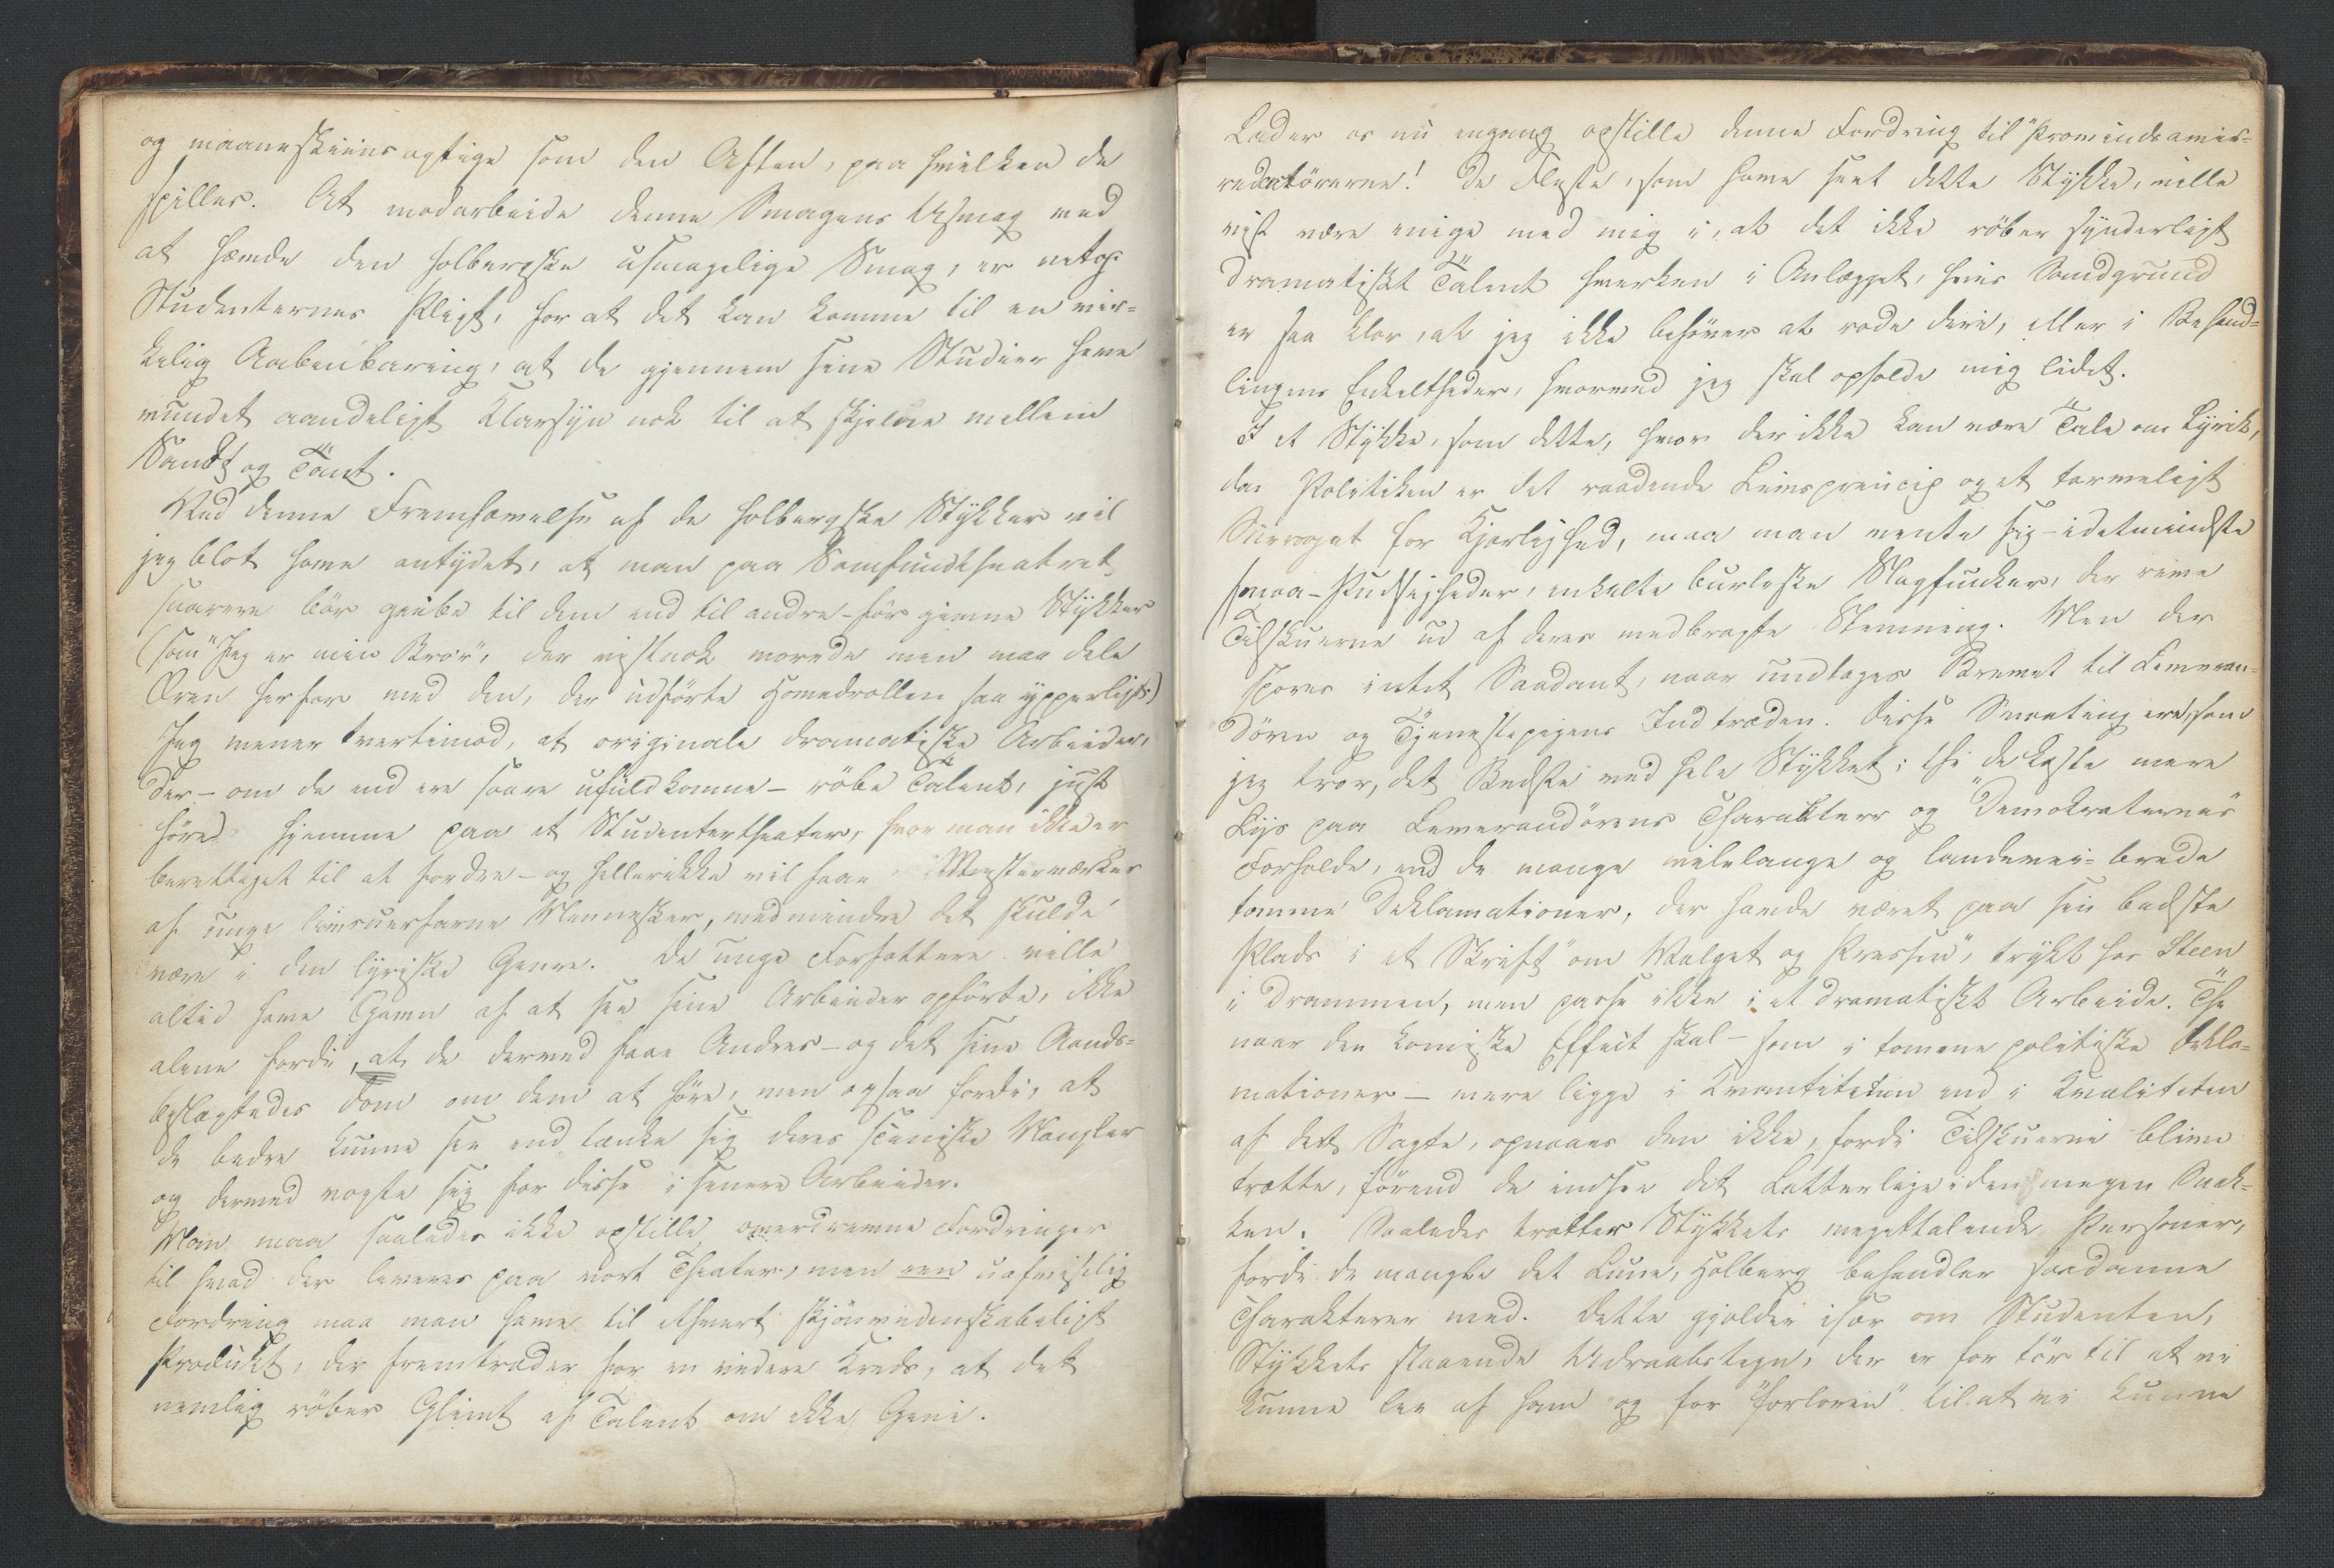 og maaneskiinsagtige som den Aften, paa hvilken de
spilles. At modarbeide denne Smagens Usmag med
at hævde den holbergske usmagelige Smag, er netop
Studenternes Pligt, for at det kan komme til en vir-
kelig Aabenbaring, at de gjennem sine Studier have
vundet aandeligt Klarsyn nok til at skjelne mellem
Sandt og Tant.
Med denne Fremhævelse af de holbergske Stykker vil
jeg blot have antydet, at man paa Samfundstheatret
snarere bør gribe til dem end til andre – før givne Stykker
(som "Jeg er min Bror", der vistnok morede men maa dele
Æren herfor med den, der udførte Hovedrollen saa ypperligt.)
Jeg mener tvertimod, at originale dramatiske Arbeider,
der – om de end ere saare ufuldkomne – røbe Talent, just
høre hjemme paa et Studentertheater, hvor man ikke er
berettiget til at fordre – og hellerikke vil faae Mesterværker
af unge livsuerfarne Mennesker, medmindre det skulde
være i den lyriske Genre. De unge Forfattere ville
altid have Gavn af at see sine Arbeider opførte, ikke
alene fordi, at de derved faae Andres – og det sine Aands-
beslægtedes Dom om dem at høre, men ogsaa fordi, at
de bedre kunne see end tænke sig deres sceniske Mangler
og dermed vogte sig for disse i senere Arbeider.
Man maa saaledes ikke opstille overdrevne Fordringer
til hvad der leveres paa vort Theater, men een uafviselig
Fordring maa man have til ethvert skjønvidenskabeligt
Produkt, der fremtræder for en videre Kreds, at det
nemlig røber Glimt af Talent om ikke Geni.
Lader os nu engang opstille denne Fordring til "Provindsavis-
redaktørerne! De Fleste, som have seet dette Stykke, ville
vist være enige med mig i, at det ikke røber synderligt
dramatiskt Talent hverken i Anlægget, hvis Sandgrund
er saa klar, at jeg ikke behøver at rode deri, eller i Behand-
lingens Enkeltheder, hvorved jeg skal opholde mig lidet.
I et Stykke, som dette, hvor der ikke kan være Tale om Lyrik,
da Politiken er det raadende Livsprincip og et tarveligt
Surrogat for Kjærlighed, maa man vente sig – idetmindste
smaa-Pudsigheder, enkelte burleske Slagfunker, der rive
Tilskuerne ud af deres medbragte Stemning. Men der
spores intet Saadant, naar undtages Brevet til Leveran-
døren og Tjenestepigens Indtræden. Disse Smaating ere, som
jeg tror, det Bedste ved hele Stykket; thi de kaste mere
Lys paa Leverandørens Charakteer og "Demokraternes"
Forholde, end de mange milelange og landevei-brede
tomme Deklamationer, der havde været paa sin bedste
Plads i et Skrift "om Valget og Pressen", trykt hos Steen
i Drammen, men passe ikke i et dramatiskt Arbeide. Thi
naar den komiske Effect skal – som i tomme politiske Dekla-
mationer – mere ligge i Kvantiteten end i Kvaliteten
af det Sagte, opnaaes den ikke, fordi Tilskuerne blive
trætte, førend de indsee det Latterlige i den megen Snak-
ken. Saaledes trætter Stykkets megettalende Personer,
fordi de mangle det Lune, Holberg behandler saadanne
Charakterer med. Dette gjelder især om Studenten,
Stykkets staaende Udraabstegn, der er for tør til at vi
kunne lee af ham og for "forloren" til at vi kunne